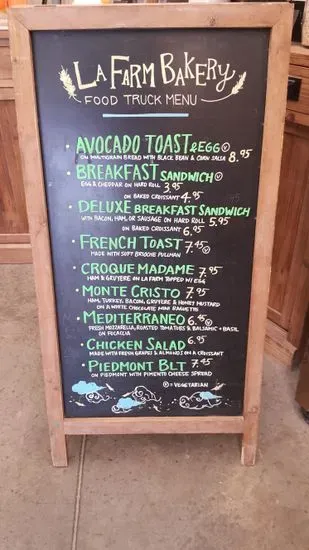 LA FARM BAKERY
FOOD TRUCK MENU
• AVOCADO TOAST & EGG Ⓥ
ON MULTIGRAIN BREAD WITH BLACK BEAN & CORN SALSA 8.95
• BREAKFAST SANDWICH Ⓥ
EGG & CHEDDAR ON HARD ROLL 3.95
ON BAKED CROISSANT 4.95
• DELUXE BREAKFAST SANDWICH
WITH BACON, HAM, OR SAUSAGE ON HARD ROLL 5.95
ON BAKED CROISSANT 6.95
• FRENCH TOAST 7.45 Ⓥ
MADE WITH SOFT BRIOCHE PULLMAN
• CROQUE MADAME 7.95
HAM & GRUYERE ON LA FARM TOPPED W/ EGG
• MONTE CRISTO 7.95
HAM, TURKEY, BACON, GRUYERE & HONEY MUSTARD
ON A WHITE CHOCOLATE MINI BAGUETTE
• MEDITERRANEO 6.45 Ⓥ
FRESH MOZZARELLA, ROASTED TOMATOES & BALSAMIC + BASIL
ON FOCACCIA
• CHICKEN SALAD 6.95
MADE WITH FRESH GRAPES & ALMONDS ON A CROISSANT
• PIEDMONT BLT 7.45
ON PIEDMONT WITH PIMENTO CHEESE SPREAD
Ⓥ = VEGETARIAN